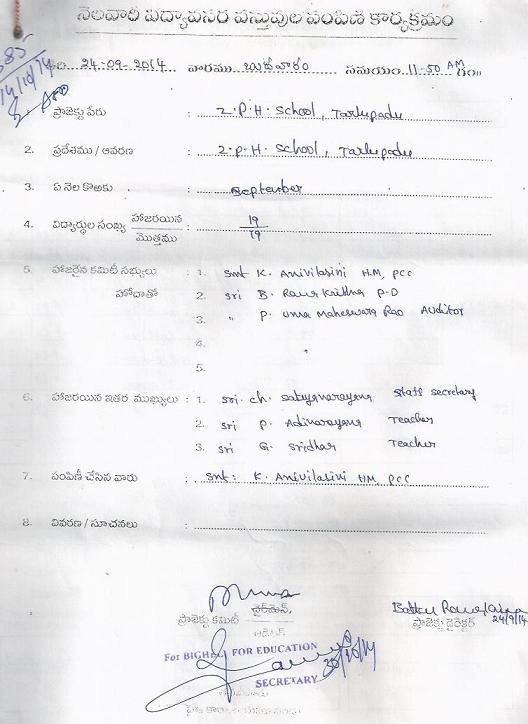 నెలవారి విద్యావసర వస్తువుల పంపిణి కార్యక్రమం
24-09-2014 వారము బుధవారం సమయం 11-50 AM గం॥
14/10/14
ప్రాజెక్టు పేరు : Z.P.H. School, Tarlupadu
2. ప్రదేశము / ఆవరణ : Z.P.H. School, Tarlupadu
3. ఏ నెల కొఱకు : September
4. విద్యార్థుల సంఖ్య హాజరయిన / మొత్తము : 19 / 19
5. హాజరైన కమిటీ సభ్యులు : 1. Smt K. Anivilasini H.M, PCC
హోదాతో 2. Sri B. Rama Krishna P.D
3. " P. Uma Maheswara Rao Auditor
4.
5.
6. హాజరయిన ఇతర ముఖ్యులు : 1. Sri. Ch. Satyanarayana Staff Secretary
2. Sri P. Adinarayana Teacher
3. Sri G. Sridhar Teacher
7. పంపిణీ చేసిన వారు : Smt: K. Anivilasini HM, PCC
8. వివరణ / సూచనలు :
ప్రాజెక్టు కమిటీ ఛైర్మెన్,
24/9/14
ప్రాజెక్టు డైరెక్టర్
ఆడిటర్
For BIGHELP FOR EDUCATION
SECRETARY